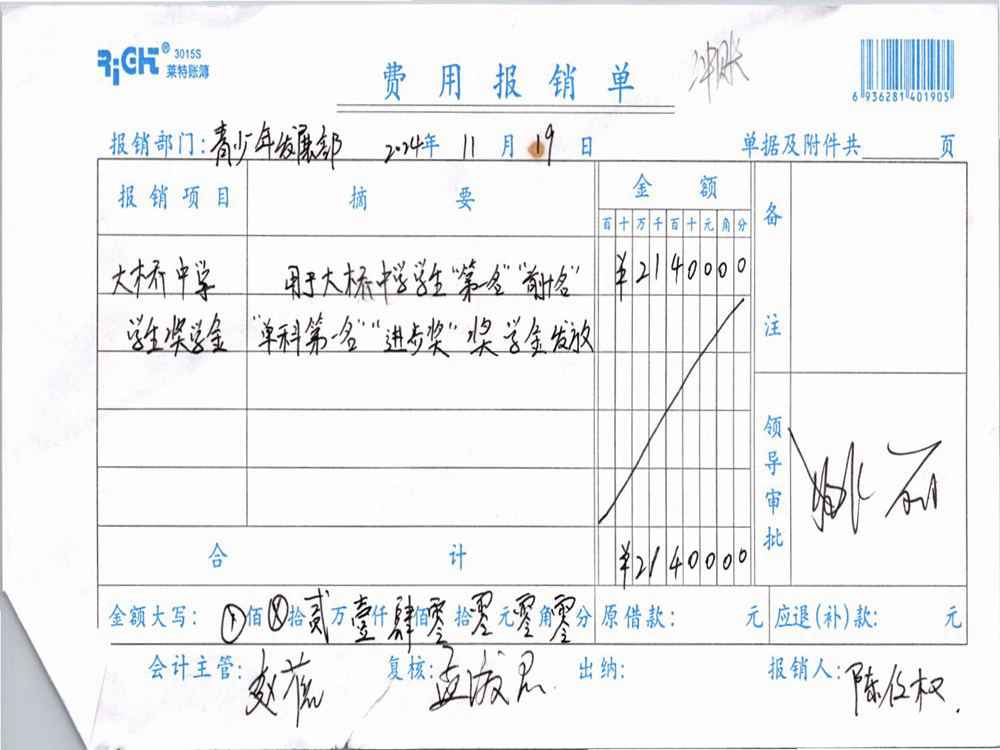 RiGHT® 3015S
莱特账簿
费用报销单
冲账
6 936281 401905
报销部门：青少年发展部 2024年 11月 19日 单据及附件共 页
报销项目 摘要 金额 备注
百十万千百十元角分
大桥中学 用于大桥中学学生“第一名”“前十名” ¥2140000
学生奖学金 “单科第一名”“进步奖”奖学金发放
领导审批
合计 ¥2140000
金额大写： 佰 拾贰万壹仟肆佰零拾零元零角零分 原借款： 元 应退(补)款： 元
会计主管： 复核： 出纳： 报销人：